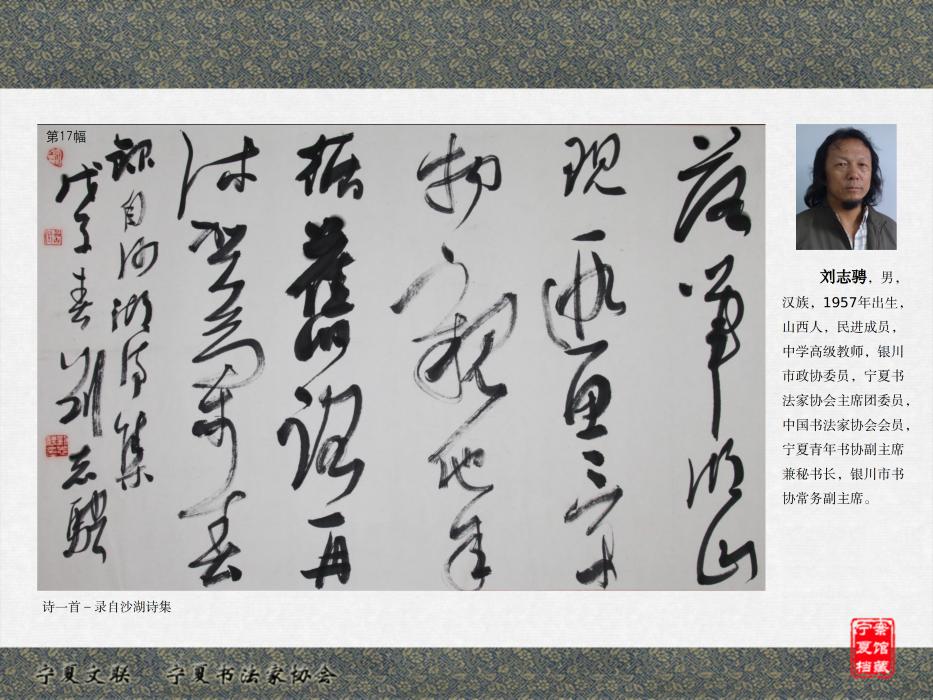 第17幅
落筆湖山
现
物
他年
再
春
錄自沙湖诗集
戊子春 劉志騁
刘志骋，男，
汉族，1957年出生，
山西人，民进成员，
中学高级教师，银川
市政协委员，宁夏书
法家协会主席团委员，
中国书法家协会会员，
宁夏青年书协副主席
兼秘书长，银川市书
协常务副主席。
诗一首－录自沙湖诗集
宁夏文联 宁夏书法家协会
宁夏档案馆藏